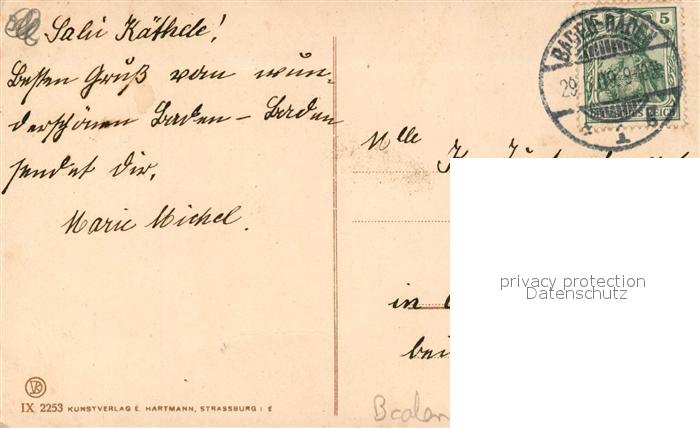 Salü Käthele!
Besten Gruß vom wun-
derschönen Baden-Baden
sendet dir,
Marie Michel.
IX 2253 KUNSTVERLAG E. HARTMANN, STRASSBURG i E
BADEN-BADEN
5
Mlle
in
bei
privacy protection
Datenschutz